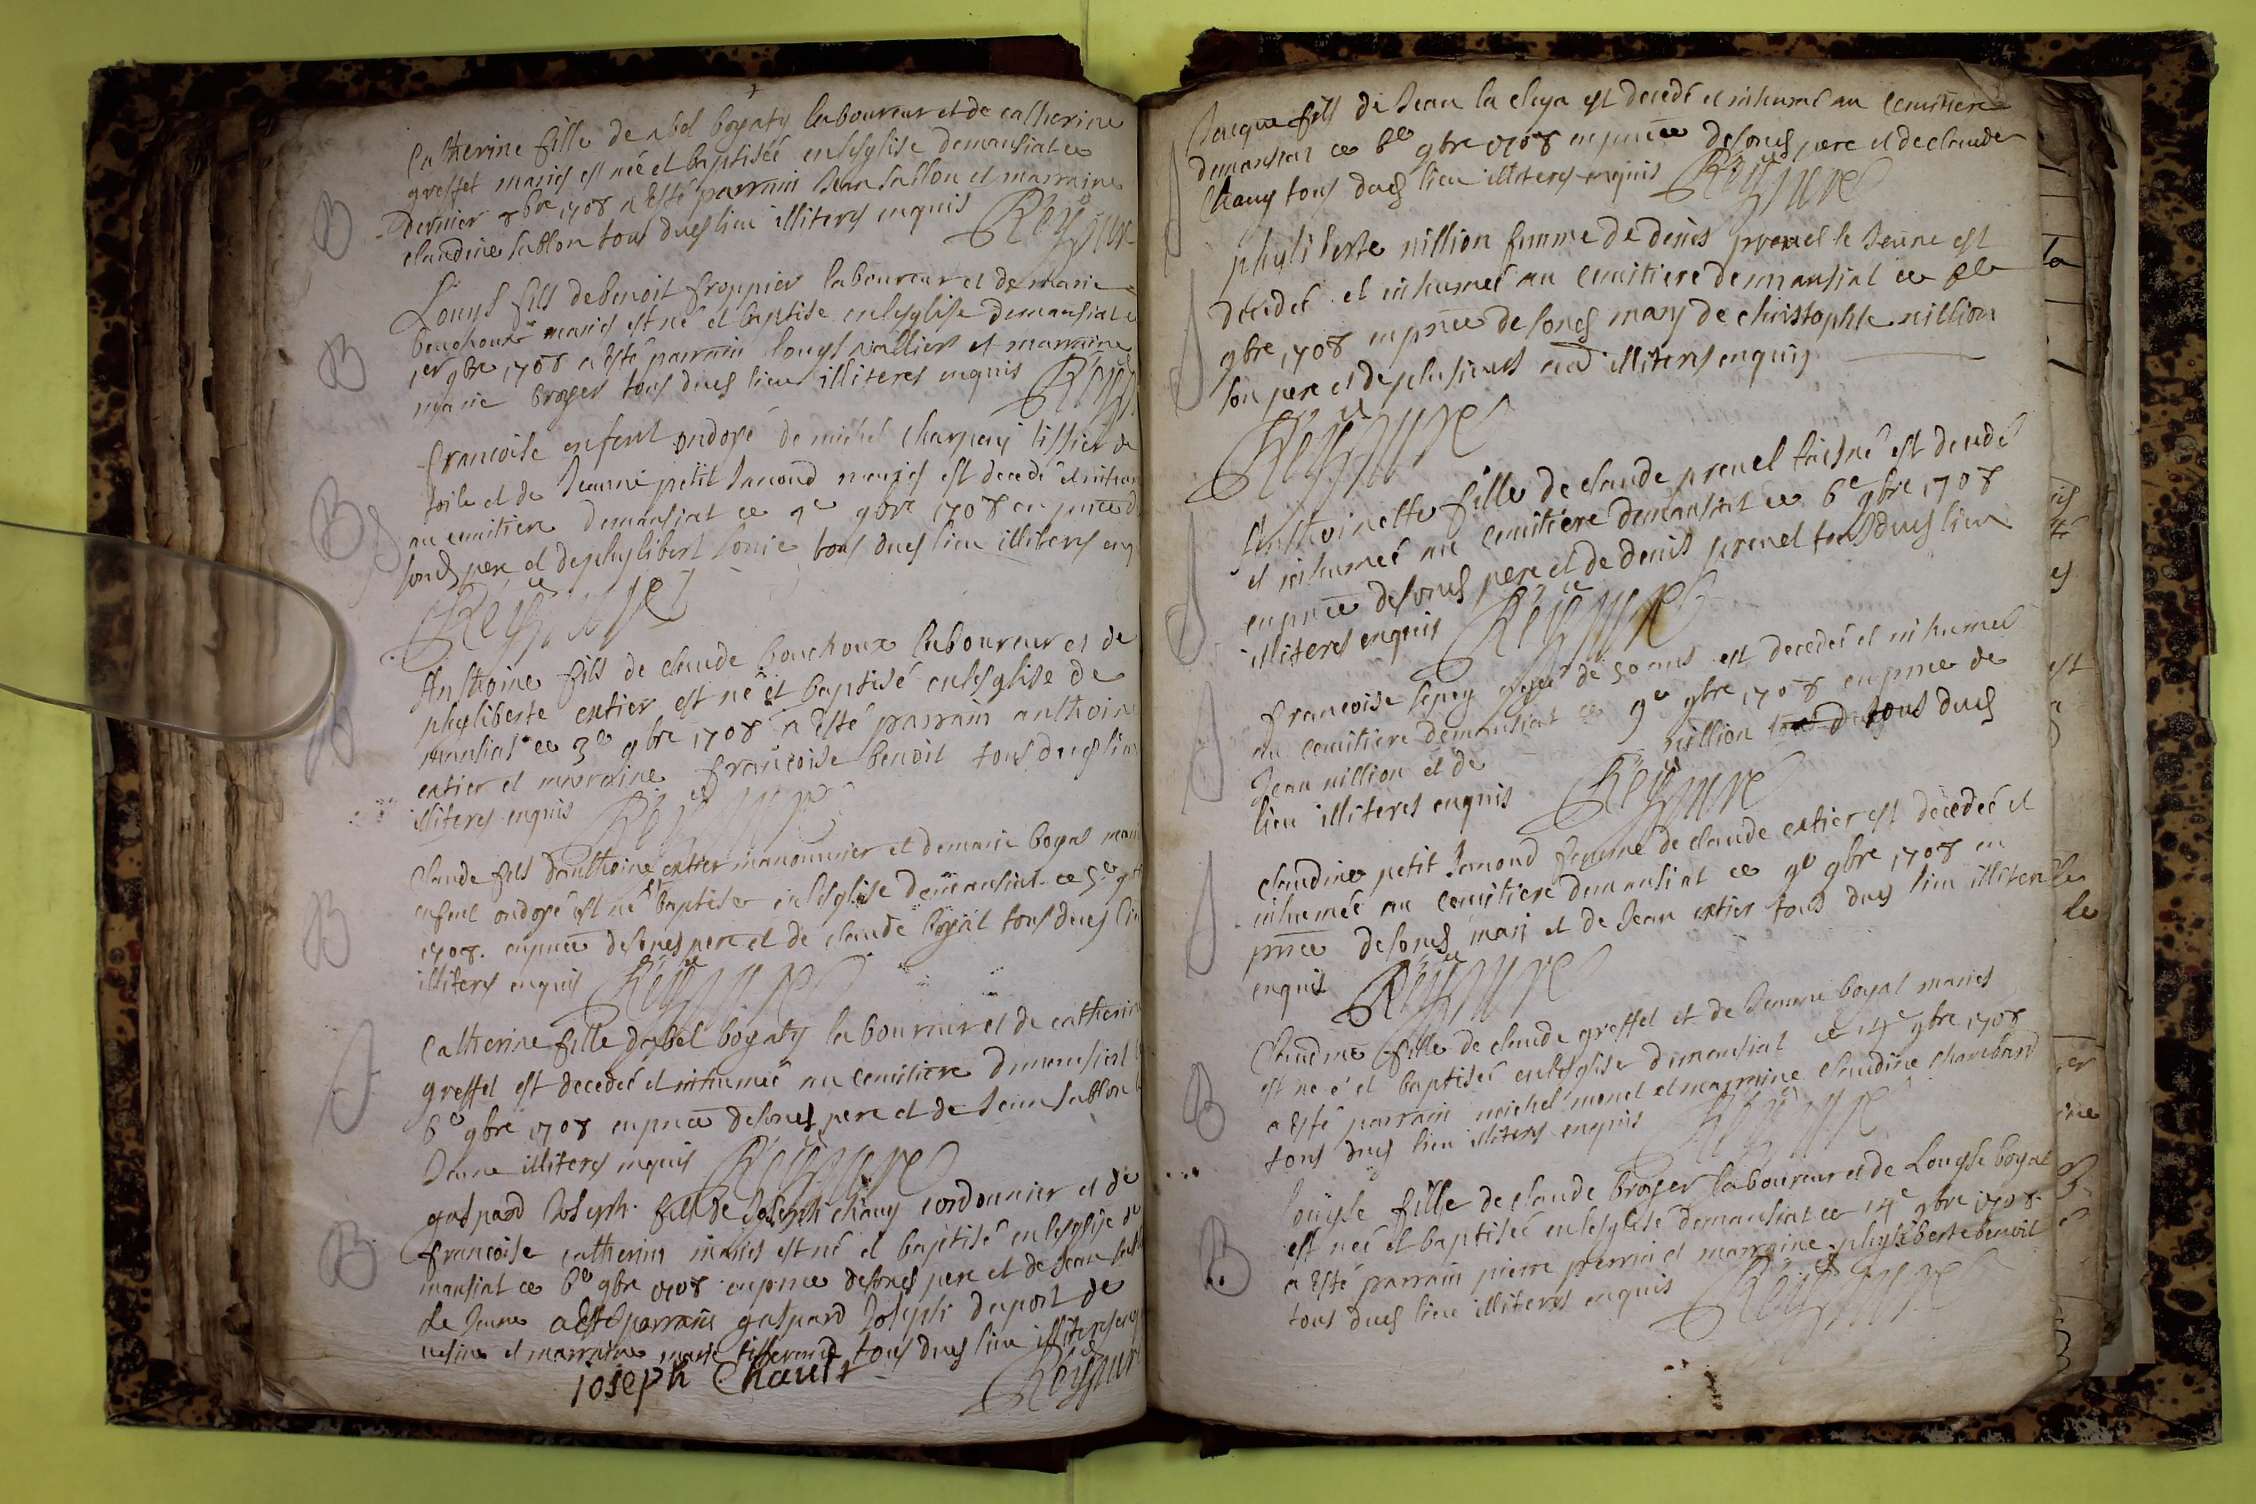 Catherine fille de abel bogaty laboureur et de catherine
greffet mariés est née et baptiseé en lesglise demansiat ce
dernier 8bre 1708 a Esté parrain Jean sallon et marraine
claudine sablon tous dud lieu illiteres enquis
B
Louys fils de benoit froppier laboureur et de marie
bouchoux mariés est né et baptise en lesglise demansiat
1er 9bre 1708 a Esté parrain louys vallier et marraine
marie broyer tous dud lieu illiteres enquis
B
francoise enfent ondoyé de michel charpeny tissier de
toile et de Jeanne petit Janond mariés est decedé et inhum
au cemitiere demansiat ce 9bre 1708 en pnce d
sond pere et de phylibert tous dud lieu illiteres enq
B
Anthoine fils de claude bouchoux laboureur et de
phyliberte extier est né et baptisé en lesglise de
mansiat ce 3e 9bre 1708 a Esté parrain anthoine
extier et marraine francoise benoit tous dud lieu
illiteres enquis
B
Claude fils danthoine extier manouvrier et demarie boyat mari
enfent ondoyé est né baptiser en lesglise demansiat ce 5e 9b
1708. en pnce desond pere et de claude boyat tous dud lie
illiteres enquis
B
Catherine fille dabel bogaty laboureur et de catherine
greffet est decedeé et inhumeé au cemitiere demansiat
6e 9bre 1708 en pnce desond pere et de Jean sablon
Jeune illiteres enquis
gaspard Joseph fils de Joseph chauy cordonnier et de
francoise catherin mariés est né et baptisé en lesglise de
mansiat ce 6e 9bre 1708 en pnce desond pere et de Jean
le Jeune a Esté parrain gaspard Joseph duport de
et marraine marie tous dud lieu illiteres enq
B
Joseph Chauit
Jacque fils de Jean la cleya est decedé et inhumé au Cemitiere
demansiat ce 6e 9bre 1708 en pnce desond pere et de claude
Chauy tous dud lieu illiteres enquis
phyliberte nillion femme de denis prenel le Jeune est
decedeé et inhumeé au cemitiere demansiat ce
9bre 1708 en pnce de sond mary de christophle nillion
son pere et de plusieurs illiteres enquis
Anthoinette fille de claude prenel laisné est decedé
et inhumeé au cemitiere demansiat ce 6e 9bre 1708
en pnce desond pere et de denis prenel tous dud lieu
illiteres enquis
francoise ageé de 50 ans est decedeé et inhumeé
au cemitiere demansiat ce 9e 9bre 1708 en pnce de
Jean nillion et de nillion tous dud
lieu illiteres enquis
Claudine petit Janond femme de claude extier est decedeé et
inhumeé au cemitiere demansiat ce 9e 9bre 1708 en
pnce desond mari et de Jean extier tous dud lieu illiteres
enquis
Claudine fille de claude greffet et de Jeanne boyat mariés
est neé et baptiseé en lesglise demansiat ce 14e 9bre 1708
a Esté parrain michel monet et marraine claudine chambard
tous dud lieu illiteres enquis
B
Louyse fille de claude broyer laboureur et de Louyse boyat
est neé et baptiseé en lesglise demansiat ce 14e 9bre 1708.
a Esté parrain pierre perrin et marraine phyliberte benoit
tous dud lieu illiteres enquis
B